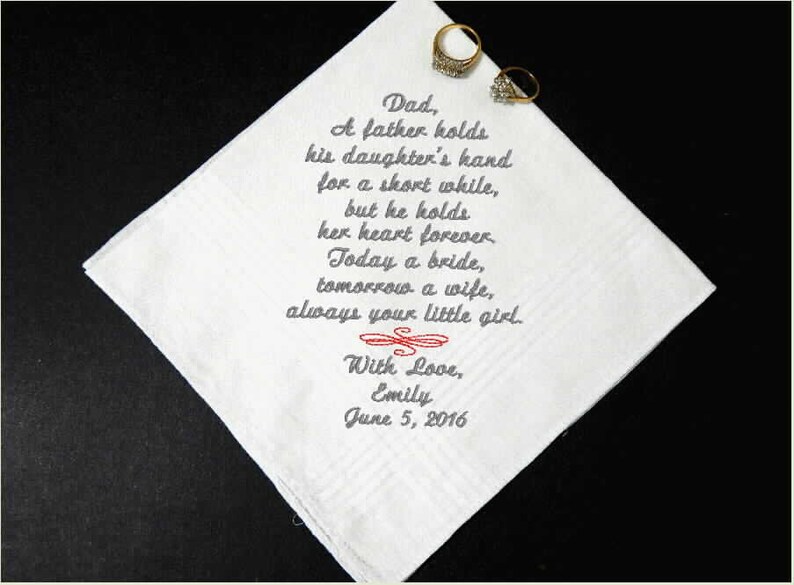 Dad,
A father holds
his daughter's hand
for a short while,
but he holds
her heart forever.
Today a bride,
tomorrow a wife,
always your little girl.
With Love,
Emily
June 5, 2016